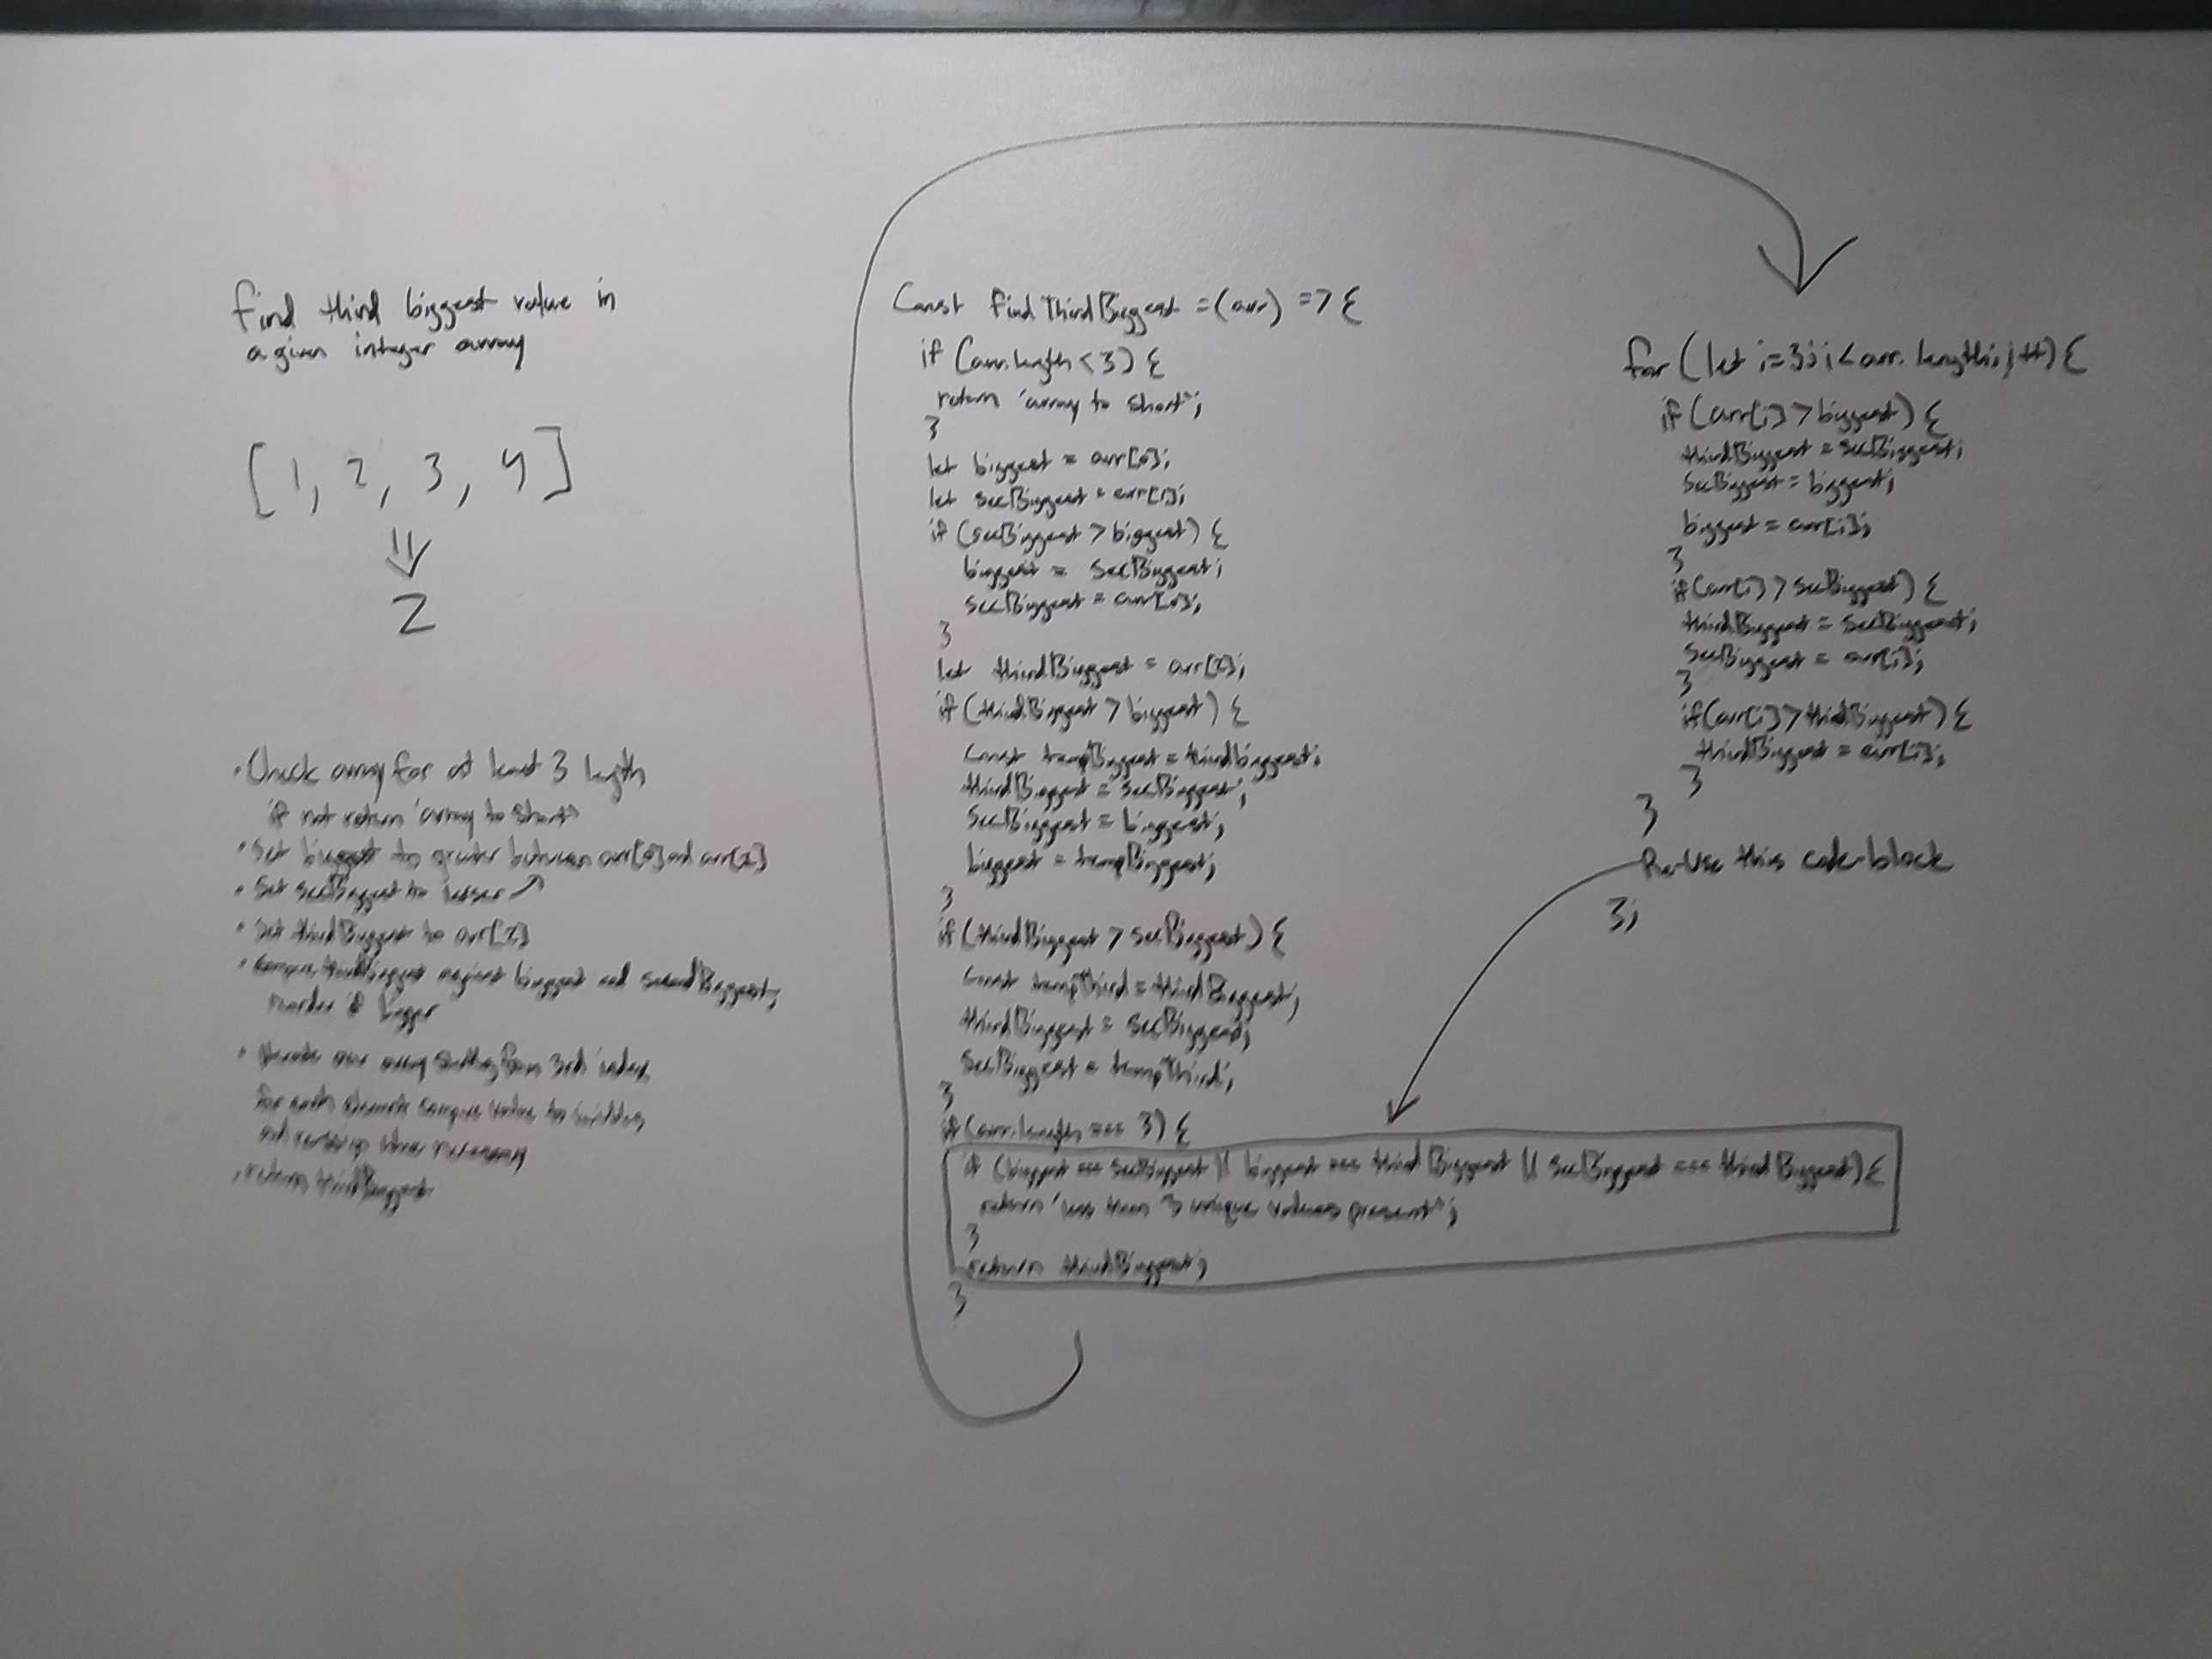 find third biggest value in
a given integer array
[1, 2, 3, 4]
2
• Check array for at least 3 length
if not return 'array to short'
• Set biggest to greater between arr[0] and arr[1]
• Set secBiggest to lesser ↗
• Set thirdBiggest to arr[2]
• compare thirdBiggest against biggest and secondBiggest,
reorder if bigger
• iterate over array starting from 3rd index,
for each element compare value to
where necessary
• return thirdBiggest
Const findThirdBiggest = (arr) => {
if (arr.length < 3) {
return 'array to short';
}
let biggest = arr[0];
let secBiggest = arr[1];
if (secBiggest > biggest) {
biggest = secBiggest;
secBiggest = arr[0];
}
let thirdBiggest = arr[2];
if (thirdBiggest > biggest) {
const tempBiggest = thirdbiggest;
thirdBiggest = secBiggest;
SecBiggest = biggest;
biggest = tempBiggest;
}
if (thirdBiggest > secBiggest) {
const tempThird = thirdBiggest;
thirdBiggest = secBiggest;
secBiggest = tempThird;
}
if (arr.length === 3) {
if (biggest === secBiggest || biggest === thirdBiggest || secBiggest === thirdBiggest) {
return 'less then 3 unique values present';
}
return thirdBiggest;
}
for (let i=3; i < arr.length; i++) {
if (arr[i] > biggest) {
thirdBiggest = secBiggest;
secBiggest = biggest;
biggest = arr[i];
}
if (arr[i] > secBiggest) {
thirdBiggest = secBiggest;
secBiggest = arr[i];
}
if (arr[i] > thirdBiggest) {
thirdBiggest = arr[i];
}
}
Re-Use this code-block
};